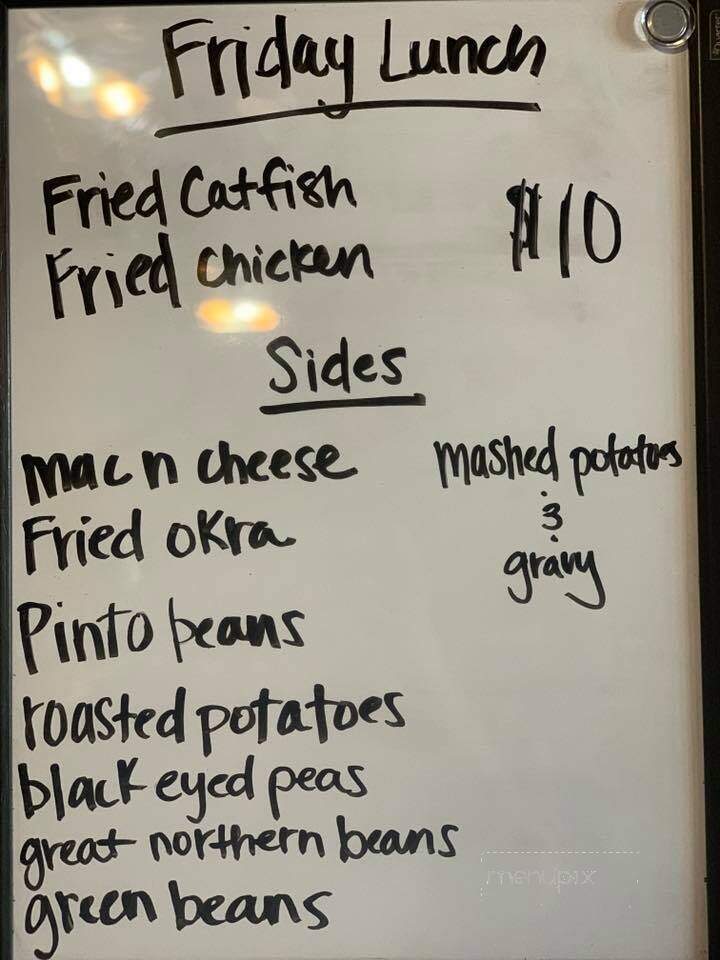 Friday Lunch
Fried Catfish
Fried chicken
$10
Sides
mac n cheese
Fried okra
Pinto beans
roasted potatoes
black eyed peas
great northern beans
green beans
mashed potatoes
&
gravy
menupix